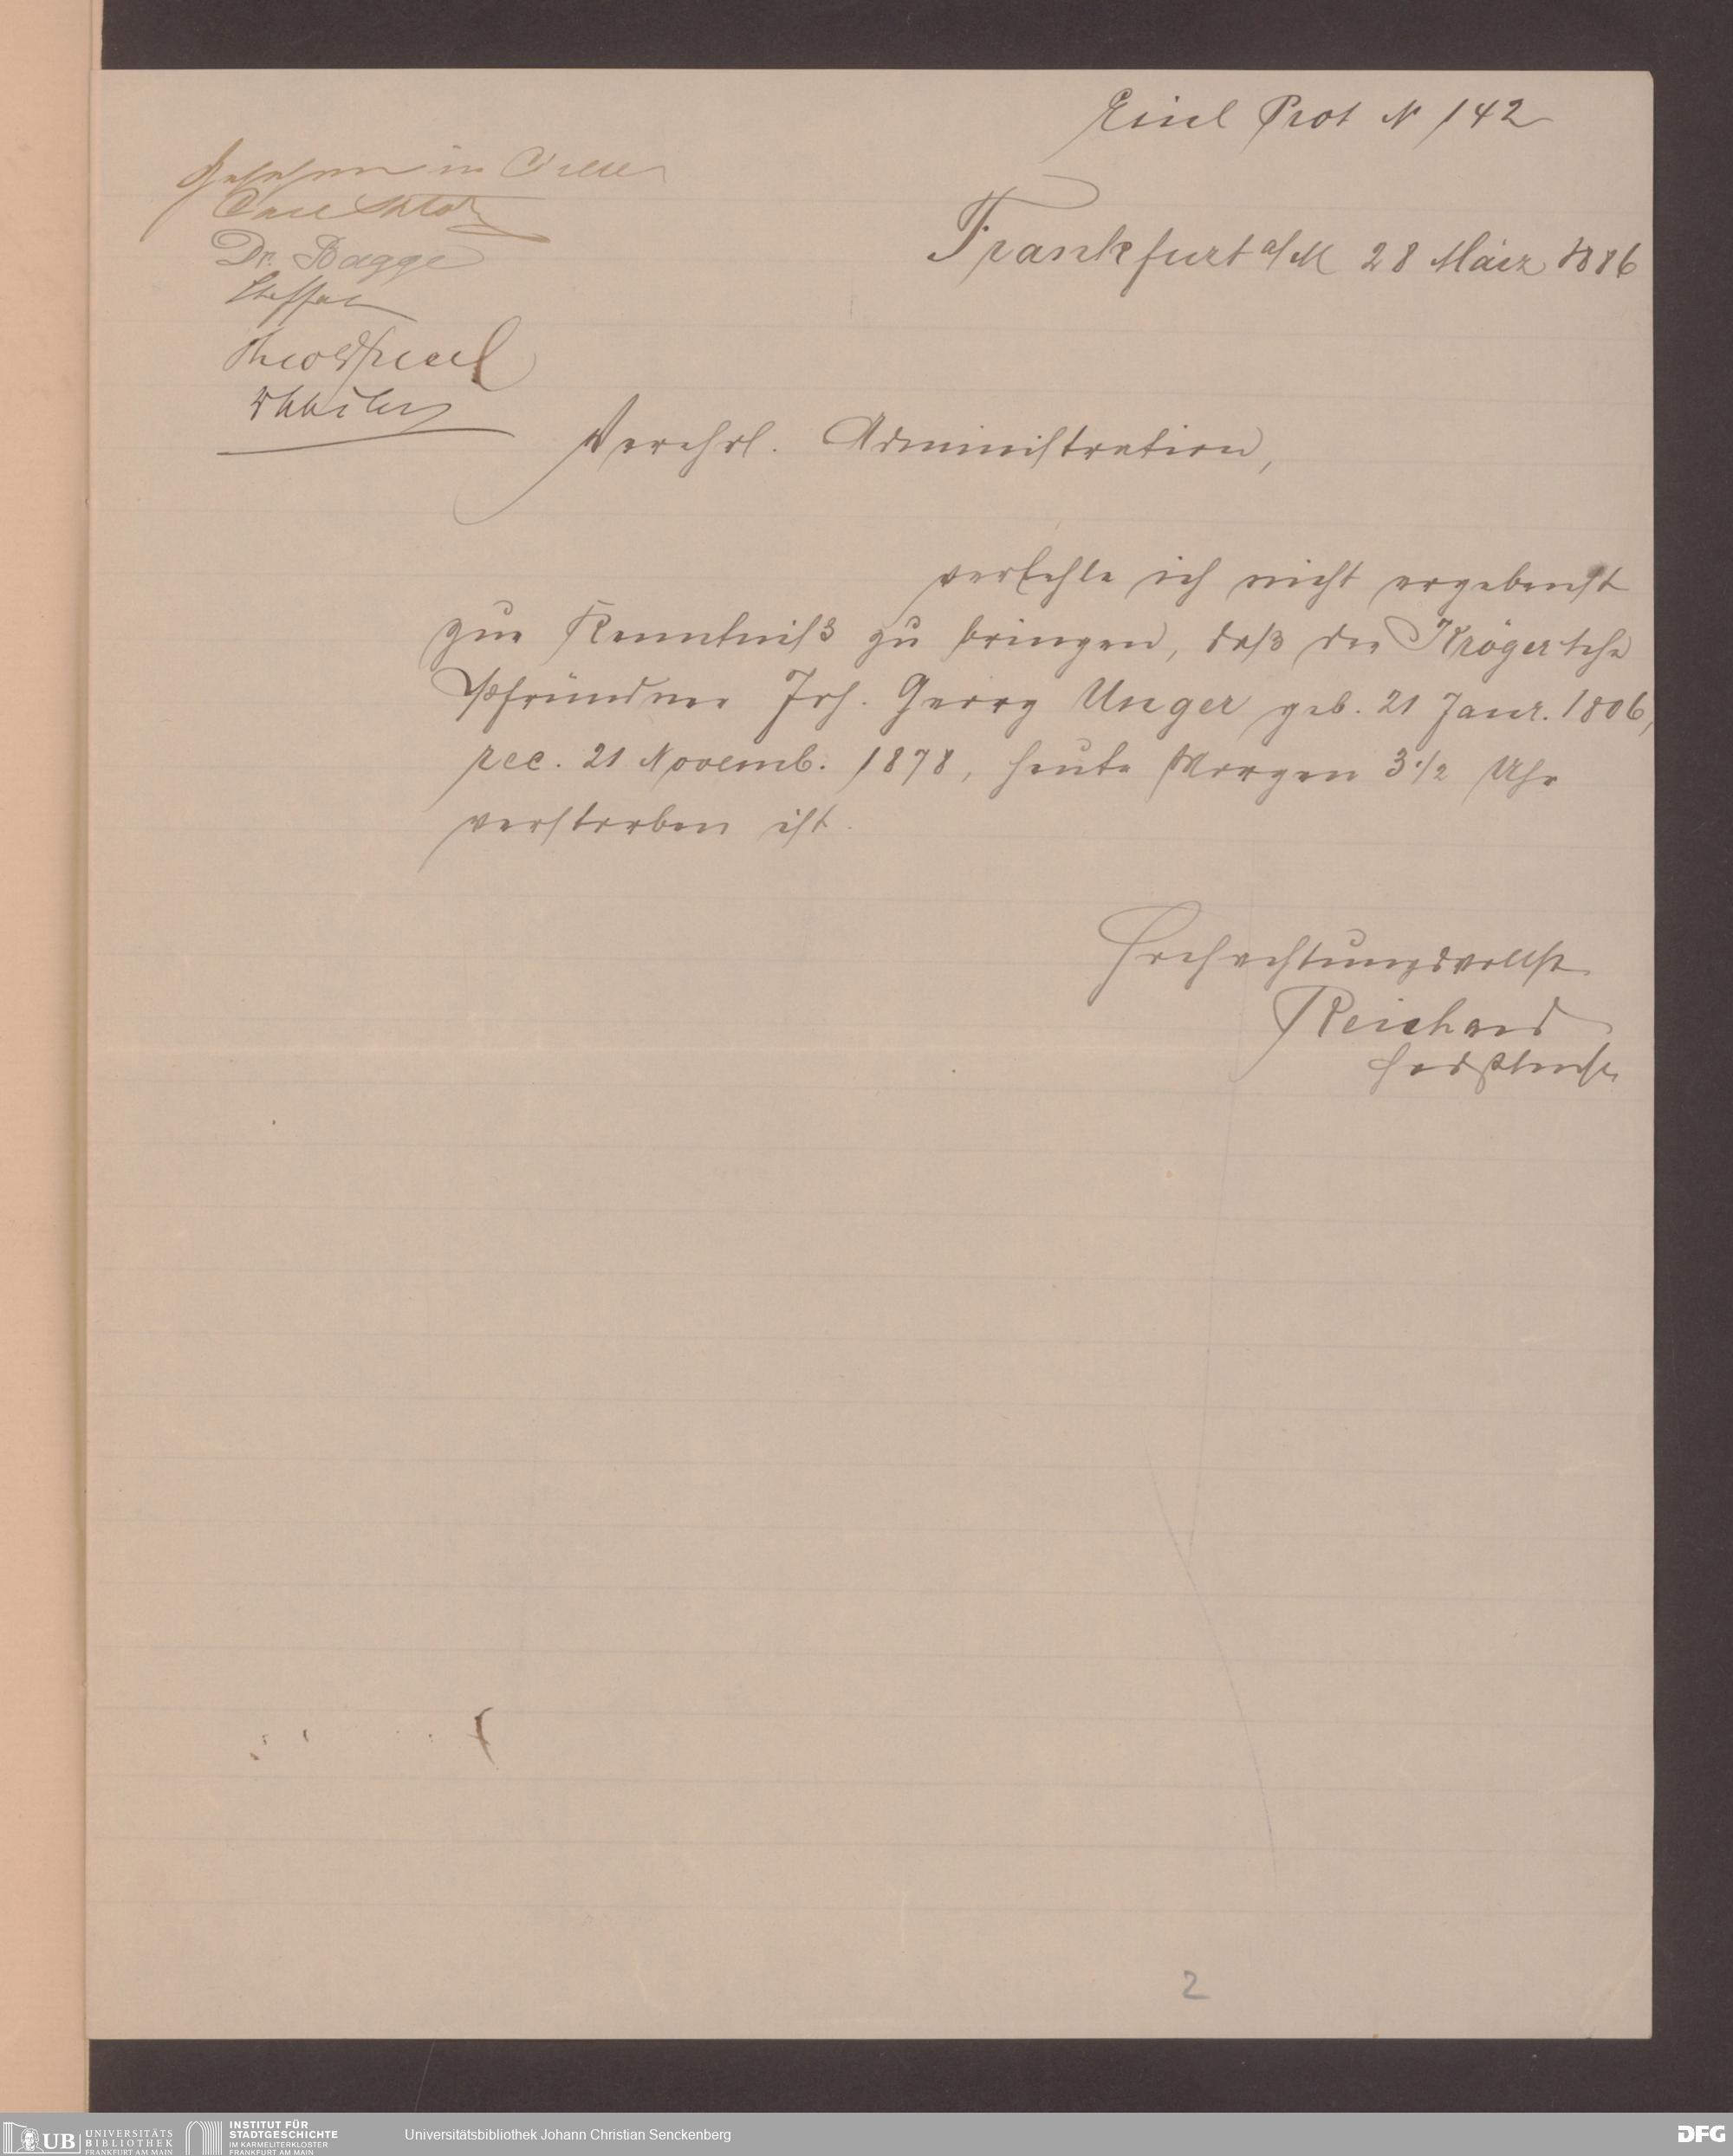 Einl Prot N 142
Gelesen
Dr. Bagge
Frankfurt a/M 28 März 1886
Verehrl. Administration,
verfehle ich nicht ergebenst
zur Kenntniß zu bringen, daß der Krögersche
Pfründner Joh. Georg Unger geb. 21 Janr. 1806,
rec. 21 Novemb. 1878, heute Morgen 3 1/2 Uhr
verstorben ist.
Hochachtungsvollst
Reichard
2
UB
UNIVERSITÄTS
BIBLIOTHEK
FRANKFURT AM MAIN
INSTITUT FÜR
STADTGESCHICHTE
IM KARMELITERKLOSTER
FRANKFURT AM MAIN
Universitätsbibliothek Johann Christian Senckenberg
DFG